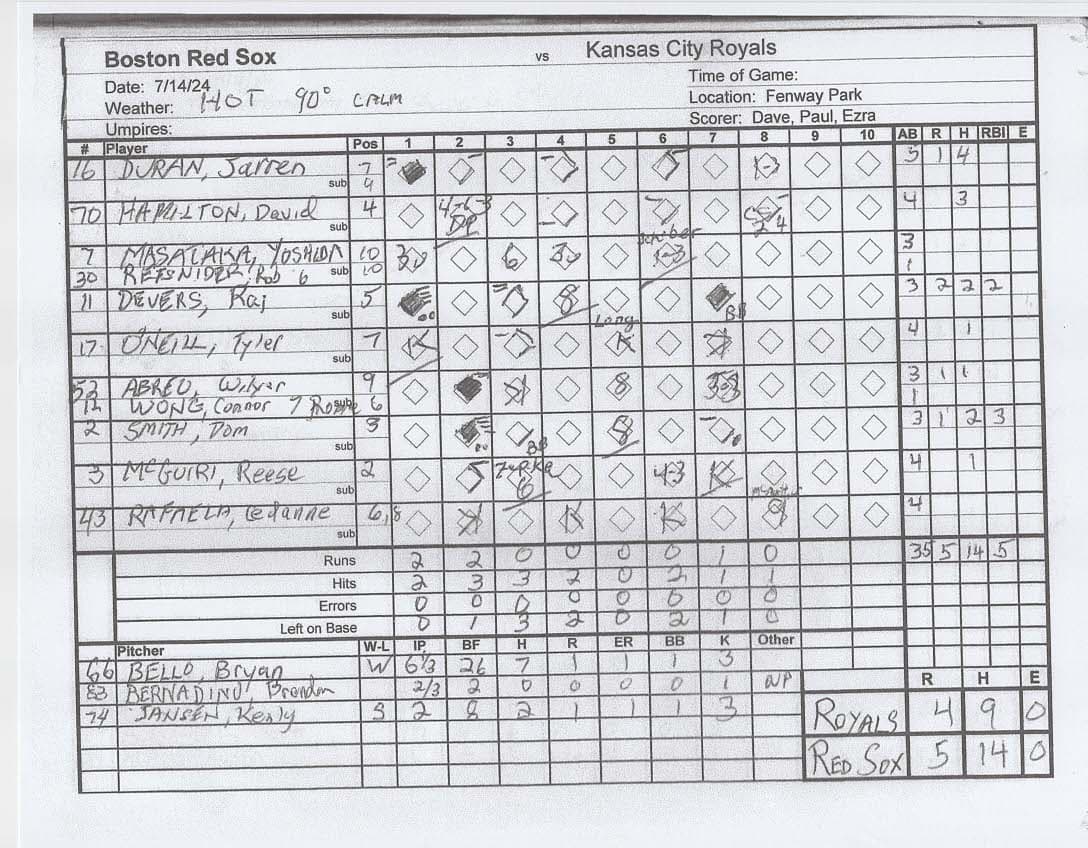 Boston Red Sox vs Kansas City Royals
Date: 7/14/24 Time of Game:
Weather: HOT 90° CALM Location: Fenway Park
Umpires: Scorer: Dave, Paul, Ezra
# Player Pos 1 2 3 4 5 6 7 8 9 10 AB R H RBI E
16 DURAN, Jarren 7 1-3 5 1 4
sub 9
70 HAMILTON, David 4 4-6-3 DP 4 3
sub
7 MASATAKA, YOSHIDA 10 6 1-3 3
30 REFSNIDER, Rob 6 sub 10 1
11 DEVERS, Raf 5 8 BB 3 2 2 2
sub
17 O'NEILL, Tyler 7 K Long K 4 1
sub
52 ABREU, Wilyer 9 8 3-3 3 1 1
12 WONG, Connor 7 sub 6 1
2 SMITH, Dom 3 BB 8 3 1 2 3
sub
3 McGUIRI, Reese 2 6 4-3 K 4 1
sub
43 RAFAELA, Cedanne 6,8 K K 9 4
sub
Runs 2 2 0 0 0 0 1 0 35 5 14 5
Hits 2 3 3 2 0 2 1 1
Errors 0 0 0 0 0 0 0 0
Left on Base 0 1 3 2 0 2 1 0
Pitcher W-L IP BF H R ER BB K Other
66 BELLO, Bryan W 6 1/3 26 7 1 1 1 3
83 BERNADINO, Brandon 2/3 2 0 0 0 0 1 WP
74 JANSEN, Kenly S 2 8 2 1 1 1 3
R H E
ROYALS 4 9 0
RED SOX 5 14 0